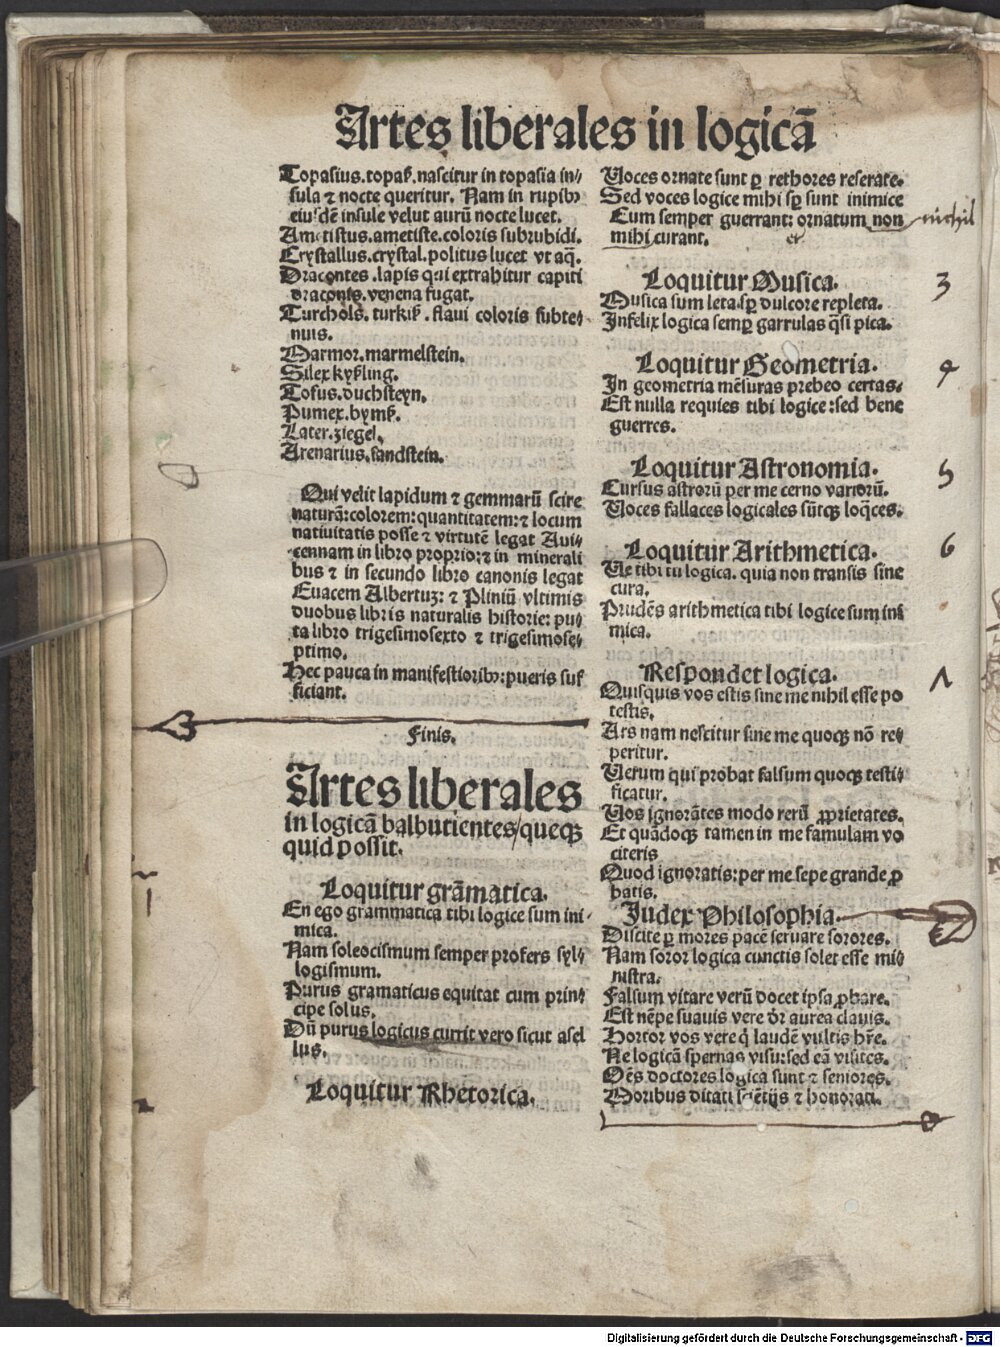 Artes liberales in logicā
Topasius.topas̄.nascitur in topasia in⸗
sula ⁊ nocte queritur. Nam in rupibꝫ
eiusdē insule velut aurū nocte lucet.
Ametistus.ametiste.coloris subrubidi.
Crystallus.crystal.politus lucet vt aq̄.
Dracontes.lapis qui extrahitur capiti
draconis.venena fugat.
Turchols̄. turkis̄. flaui coloris subte⸗
nuis.
Marmor.marmelstein.
Silex kyßling.
Tofus.duchsteyn.
Pumex.bymß.
Later.ziegel.
Arenarius.sandstein.
Qui velit lapidum ⁊ gemmarū scire
naturā:colorem:quantitatem:⁊ locum
natiuitatis posse ⁊ virtutē legat Aui⸗
cennam in libro proprio:⁊ in minerali
bus ⁊ in secundo libro canonis legat
Euacem Albertuꝫ: ⁊ Pliniū vltimis
duobus libris naturalis historie: pu⸗
ta libro trigesimosexto ⁊ trigesimose⸗
ptimo.
Hec pauca in manifestioribꝫ:pueris suf
ficiant.
Finis.
Artes liberales
in logicā balbutientes/queqꝫ
quid possit.
Loquitur grāmatica.
En ego grammatica tibi logice sum ini⸗
mica.
Nam soleocismum semper profers syl⸗
logismum.
Purus gramaticus equitat cum prin⸗
cipe solus.
Dū purus logicus currit vero sicut asel
lus.
Loquitur Rhetorica.
Voces ornate sunt ꝑ rethores reserate.
Sed voces logice mihi sꝑ sunt inimice
Cum semper guerrant: ornatum non nichil
mihi curant.
Loquitur Musica. 3
Musica sum leta.sꝑ dulcore repleta.
Infelix logica semꝑ garrulas q̄si pica.
Loquitur Geometria. 4
In geometria mēsuras prebeo certas.
Est nulla requies tibi logice:sed bene
guerres.
Loquitur Astronomia. 5
Cursus astrorū per me cerno variorū.
Voces fallaces logicales sūtqꝫ loq̄ces.
Loquitur Arithmetica. 6
Ve tibi tu logica. quia non transis sine
cura.
Prudēs arithmetica tibi logice sum ini
mica.
Respondet logica. Λ
Quisquis vos estis sine me nihil esse po
testis.
Ars nam nescitur sine me quoqꝫ nō re⸗
peritur.
Verum qui probat falsum quoqꝫ testi⸗
ficatur.
Vos ignorātes modo rerū ꝓprietates.
Et quādoqꝫ tamen in me famulam vo
citeris
Quod ignoratis:per me sepe grande ꝓ
batis.
Judex Philosophia.
Discite ꝑ mores pacē seruare sorores.
Nam soror logica cunctis solet esse mi⸗
nistra.
Falsum vitare verū docet ipsa ꝓbare.
Est nēpe suauis vere dr̄ aurea clauis.
Hortor vos vere q̄ laudē vultis hr̄e.
Ne logicā spernas visu:sed eā
Oēs doctores logica sunt ⁊ seniores.
Moribus ditati sciētijs ⁊ honorati.
Digitalisierung gefördert durch die Deutsche Forschungsgemeinschaft - DFG